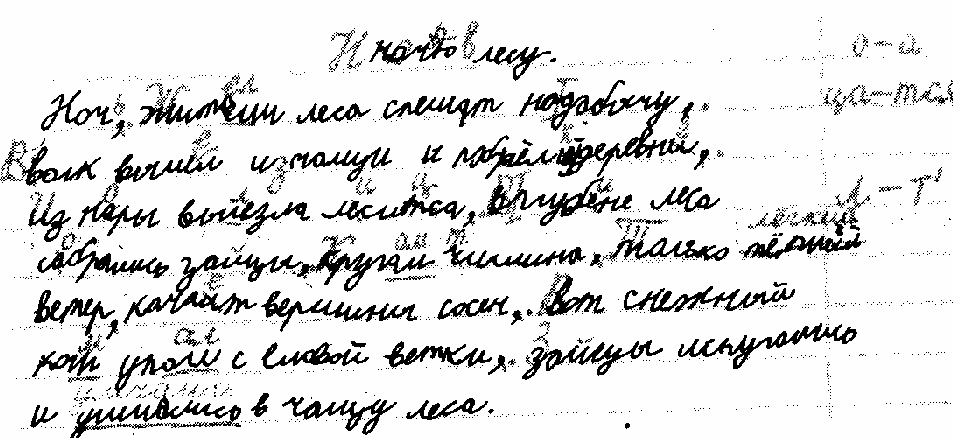 Н ночю лесу.
Ноч, жители леса спешат надабычу,
волк вышел изчащи и побрёл кдеревни,
Из нары вылезла леситса, вглубене леса
собрались зайцы, кругам тишина, только лёгкий
ветер, качает вершины сосен, Вот снежный
ком упал с еловой ветки, зайцы испугались
и умчались в чащу леса.
о-а
ца-тса